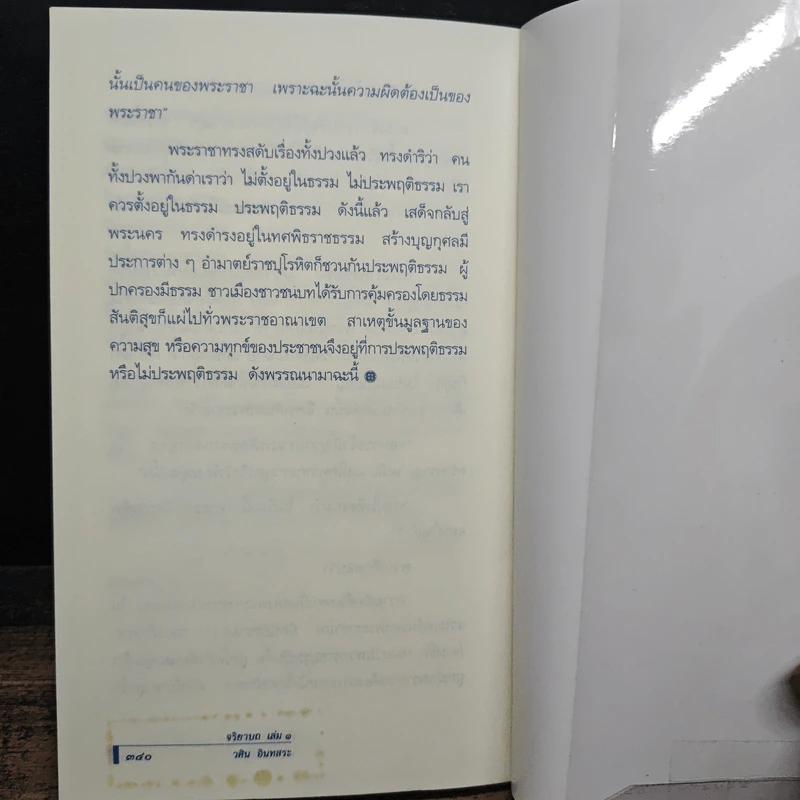 นั้นเป็นคนของพระราชา เพราะฉะนั้นความผิดต้องเป็นของ
พระราชา"
พระราชาทรงสดับเรื่องทั้งปวงแล้ว ทรงดำริว่า คน
ทั้งปวงพากันด่าเราว่า ไม่ตั้งอยู่ในธรรม ไม่ประพฤติธรรม เรา
ควรตั้งอยู่ในธรรม ประพฤติธรรม ดังนี้แล้ว เสด็จกลับสู่
พระนคร ทรงดำรงอยู่ในทศพิธราชธรรม สร้างบุญกุศลมี
ประการต่าง ๆ อำมาตย์ราชปุโรหิตก็ชวนกันประพฤติธรรม ผู้
ปกครองมีธรรม ชาวเมืองชาวชนบทได้รับการคุ้มครองโดยธรรม
สันติสุขก็แผ่ไปทั่วพระราชอาณาเขต สาเหตุขั้นมูลฐานของ
ความสุข หรือความทุกข์ของประชาชนจึงอยู่ที่การประพฤติธรรม
หรือไม่ประพฤติธรรม ดังพรรณนามาฉะนี้
จริยาบถ เล่ม ๑
๓๔๐ วศิน อินทสระ